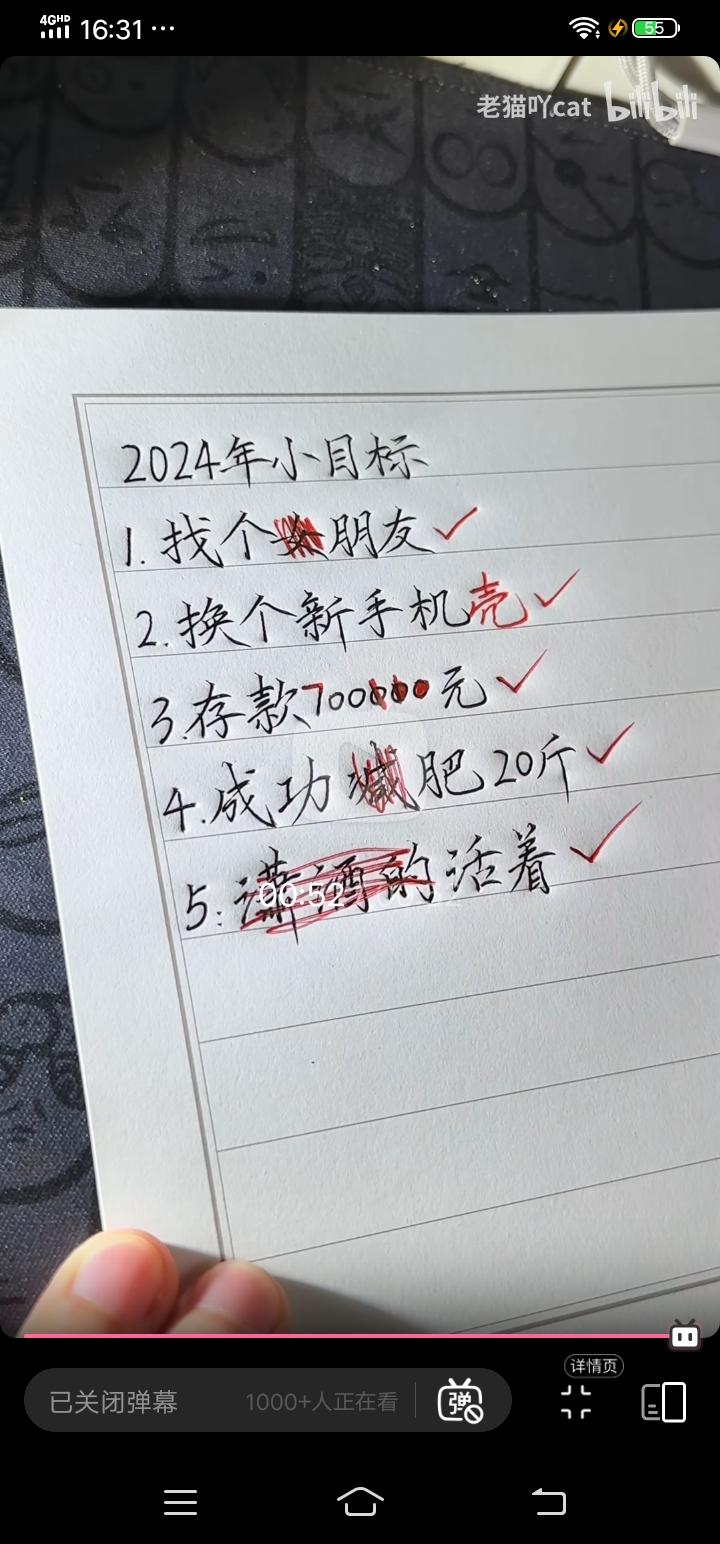 4GHD 16:31 ... 55
老猫吖cat bilibili
2024年小目标
1.找个女朋友✓
2.换个新手机壳✓
3.存款700000元✓
4.成功减肥20斤✓
5:潇洒的活着✓
00:52
详情页
已关闭弹幕 1000+人正在看 弹